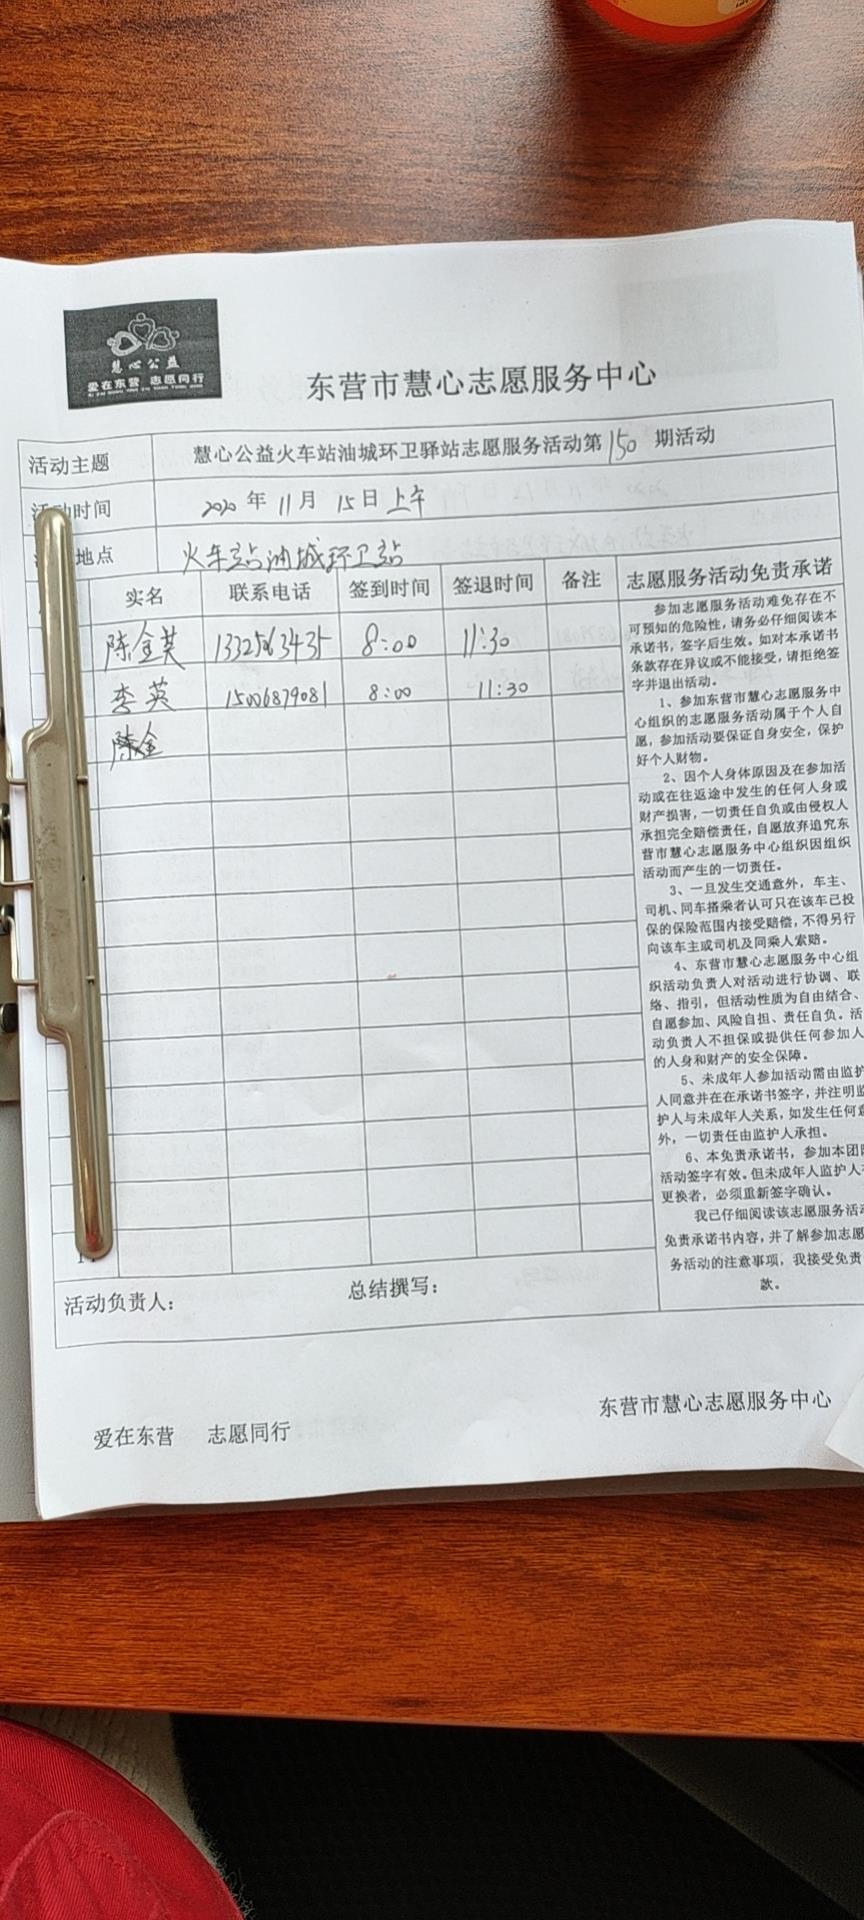 慧心公益
爱在东营 志愿同行
东营市慧心志愿服务中心
活动主题 慧心公益火车站油城环卫驿站志愿服务活动第150期活动
活动时间 2020年11月15日上午
地点 火车站油城环卫站
实名 联系电话 签到时间 签退时间 备注 志愿服务活动免责承诺
陈金英 13325063435 8:00 11:30
李英 15006879081 8:00 11:30
陈金
参加志愿服务活动难免存在不
可预知的危险性，请务必仔细阅读本
承诺书，签字后生效。如对本承诺书
条款存在异议或不能接受，请拒绝签
字并退出活动。
1、参加东营市慧心志愿服务中
心组织的志愿服务活动属于个人自
愿，参加活动要保证自身安全，保护
好个人财物。
2、因个人身体原因及在参加活
动或在往返途中发生的任何人身或
财产损害，一切责任自负或由侵权人
承担完全赔偿责任，自愿放弃追究东
营市慧心志愿服务中心组织因组织
活动而产生的一切责任。
3、一旦发生交通意外，车主、
司机、同车搭乘者认可只在该车已投
保的保险范围内接受赔偿，不得另行
向该车主或司机及同乘人索赔。
4、东营市慧心志愿服务中心组
织活动负责人对活动进行协调、联
络、指引，但活动性质为自由结合、
自愿参加、风险自担、责任自负。活
动负责人不担保或提供任何参加人
的人身和财产的安全保障。
5、未成年人参加活动需由监护
人同意并在在承诺书签字，并注明监
护人与未成年人关系，如发生任何意
外，一切责任由监护人承担。
6、本免责承诺书，参加本团队
活动签字有效。但未成年人监护人
更换者，必须重新签字确认。
我已仔细阅读该志愿服务活动
免责承诺书内容，并了解参加志愿
务活动的注意事项，我接受免责
款。
活动负责人： 总结撰写：
东营市慧心志愿服务中心
爱在东营 志愿同行